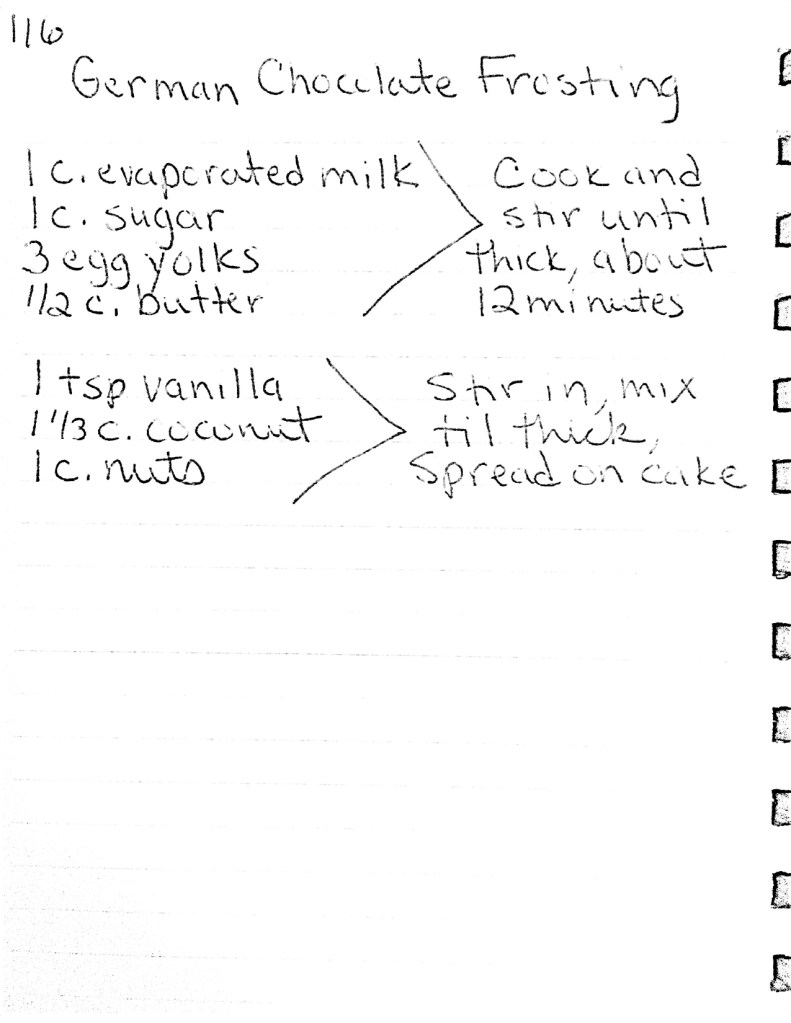 116
German Chocolate Frosting
1 c. evaporated milk
1 c. sugar
3 egg yolks
1/2 c. butter
Cook and
stir until
thick, about
12 minutes
1 tsp vanilla
1 1/3 c. coconut
1 c. nuts
Stir in, mix
til thick,
Spread on cake